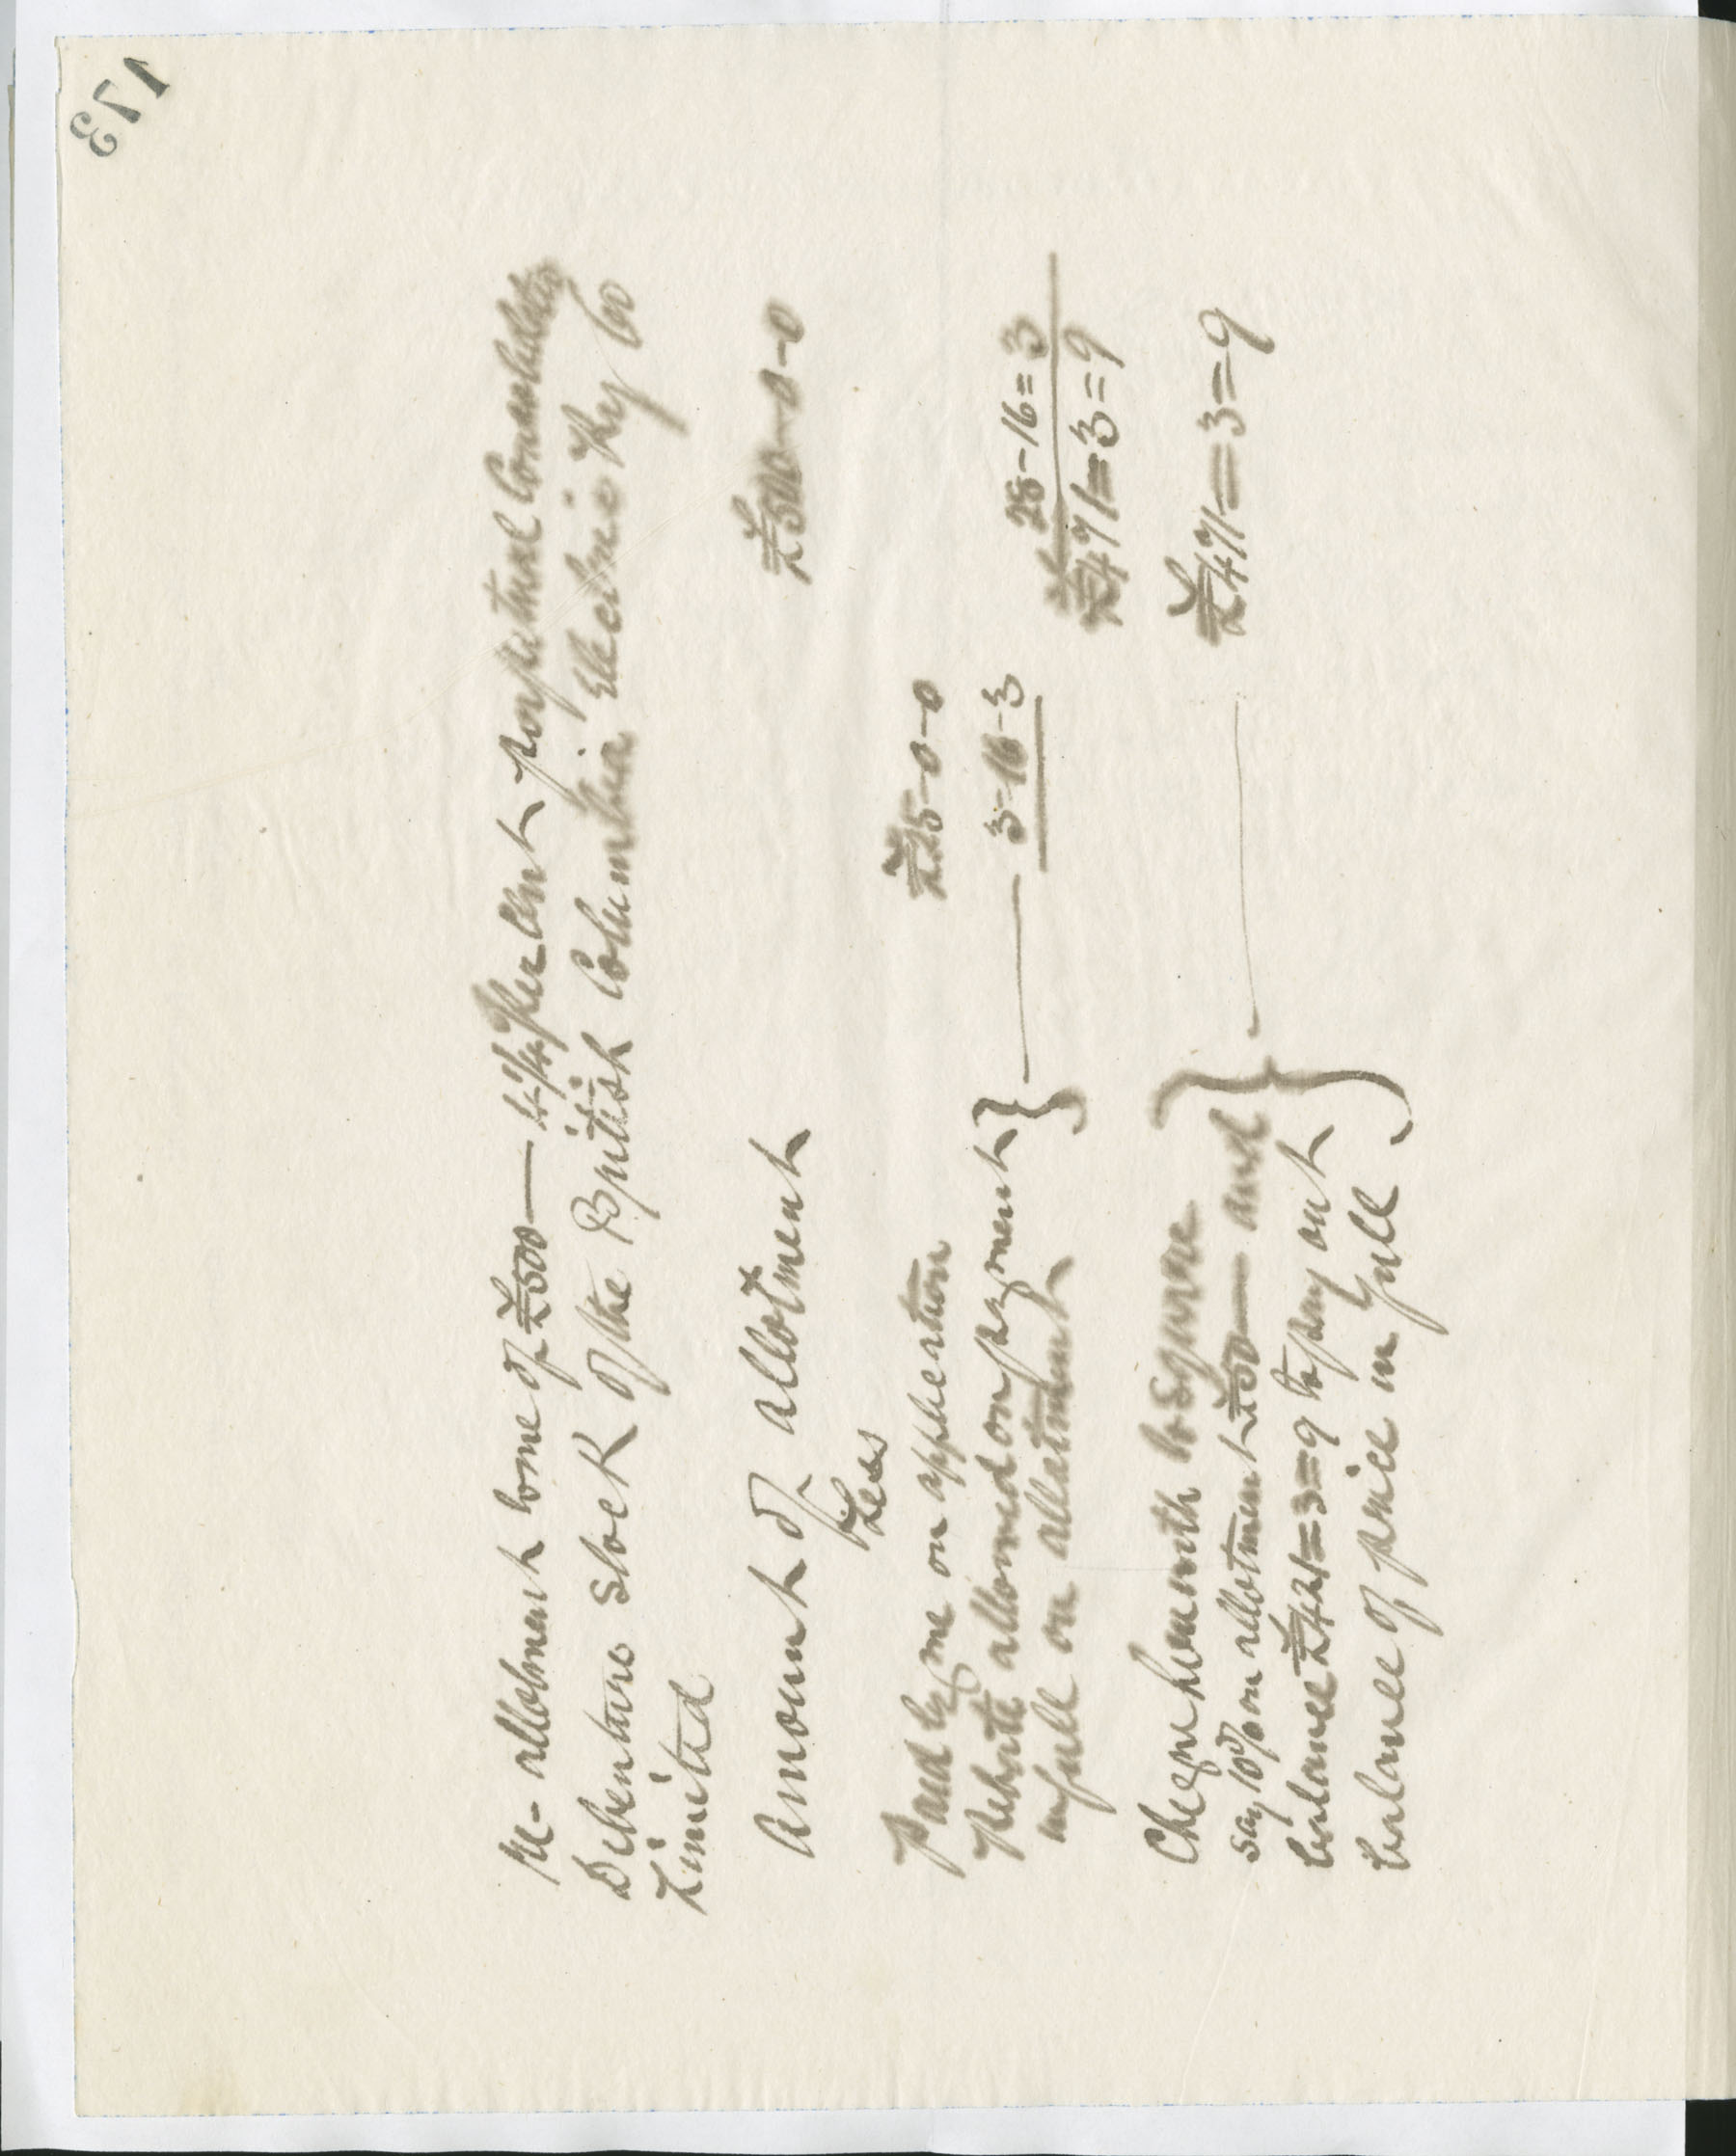 173
Re- allotment to me of £500 — 4 1/4 Per Cent perpetual Consolidated
Debenture Stock of the British Columbia Electric Ry Co
Limited
Amount of allotment £500-0-0
Less
Paid by me on application £25-0-0
Rebate allowed on payment } — 3-16-3 28-16=3
in full on allotment £471=3=9
Cheque herewith to square
say 10% on allotment £50 — and } — £471=3=9
balance £421=3=9 to pay out
balance of price in full